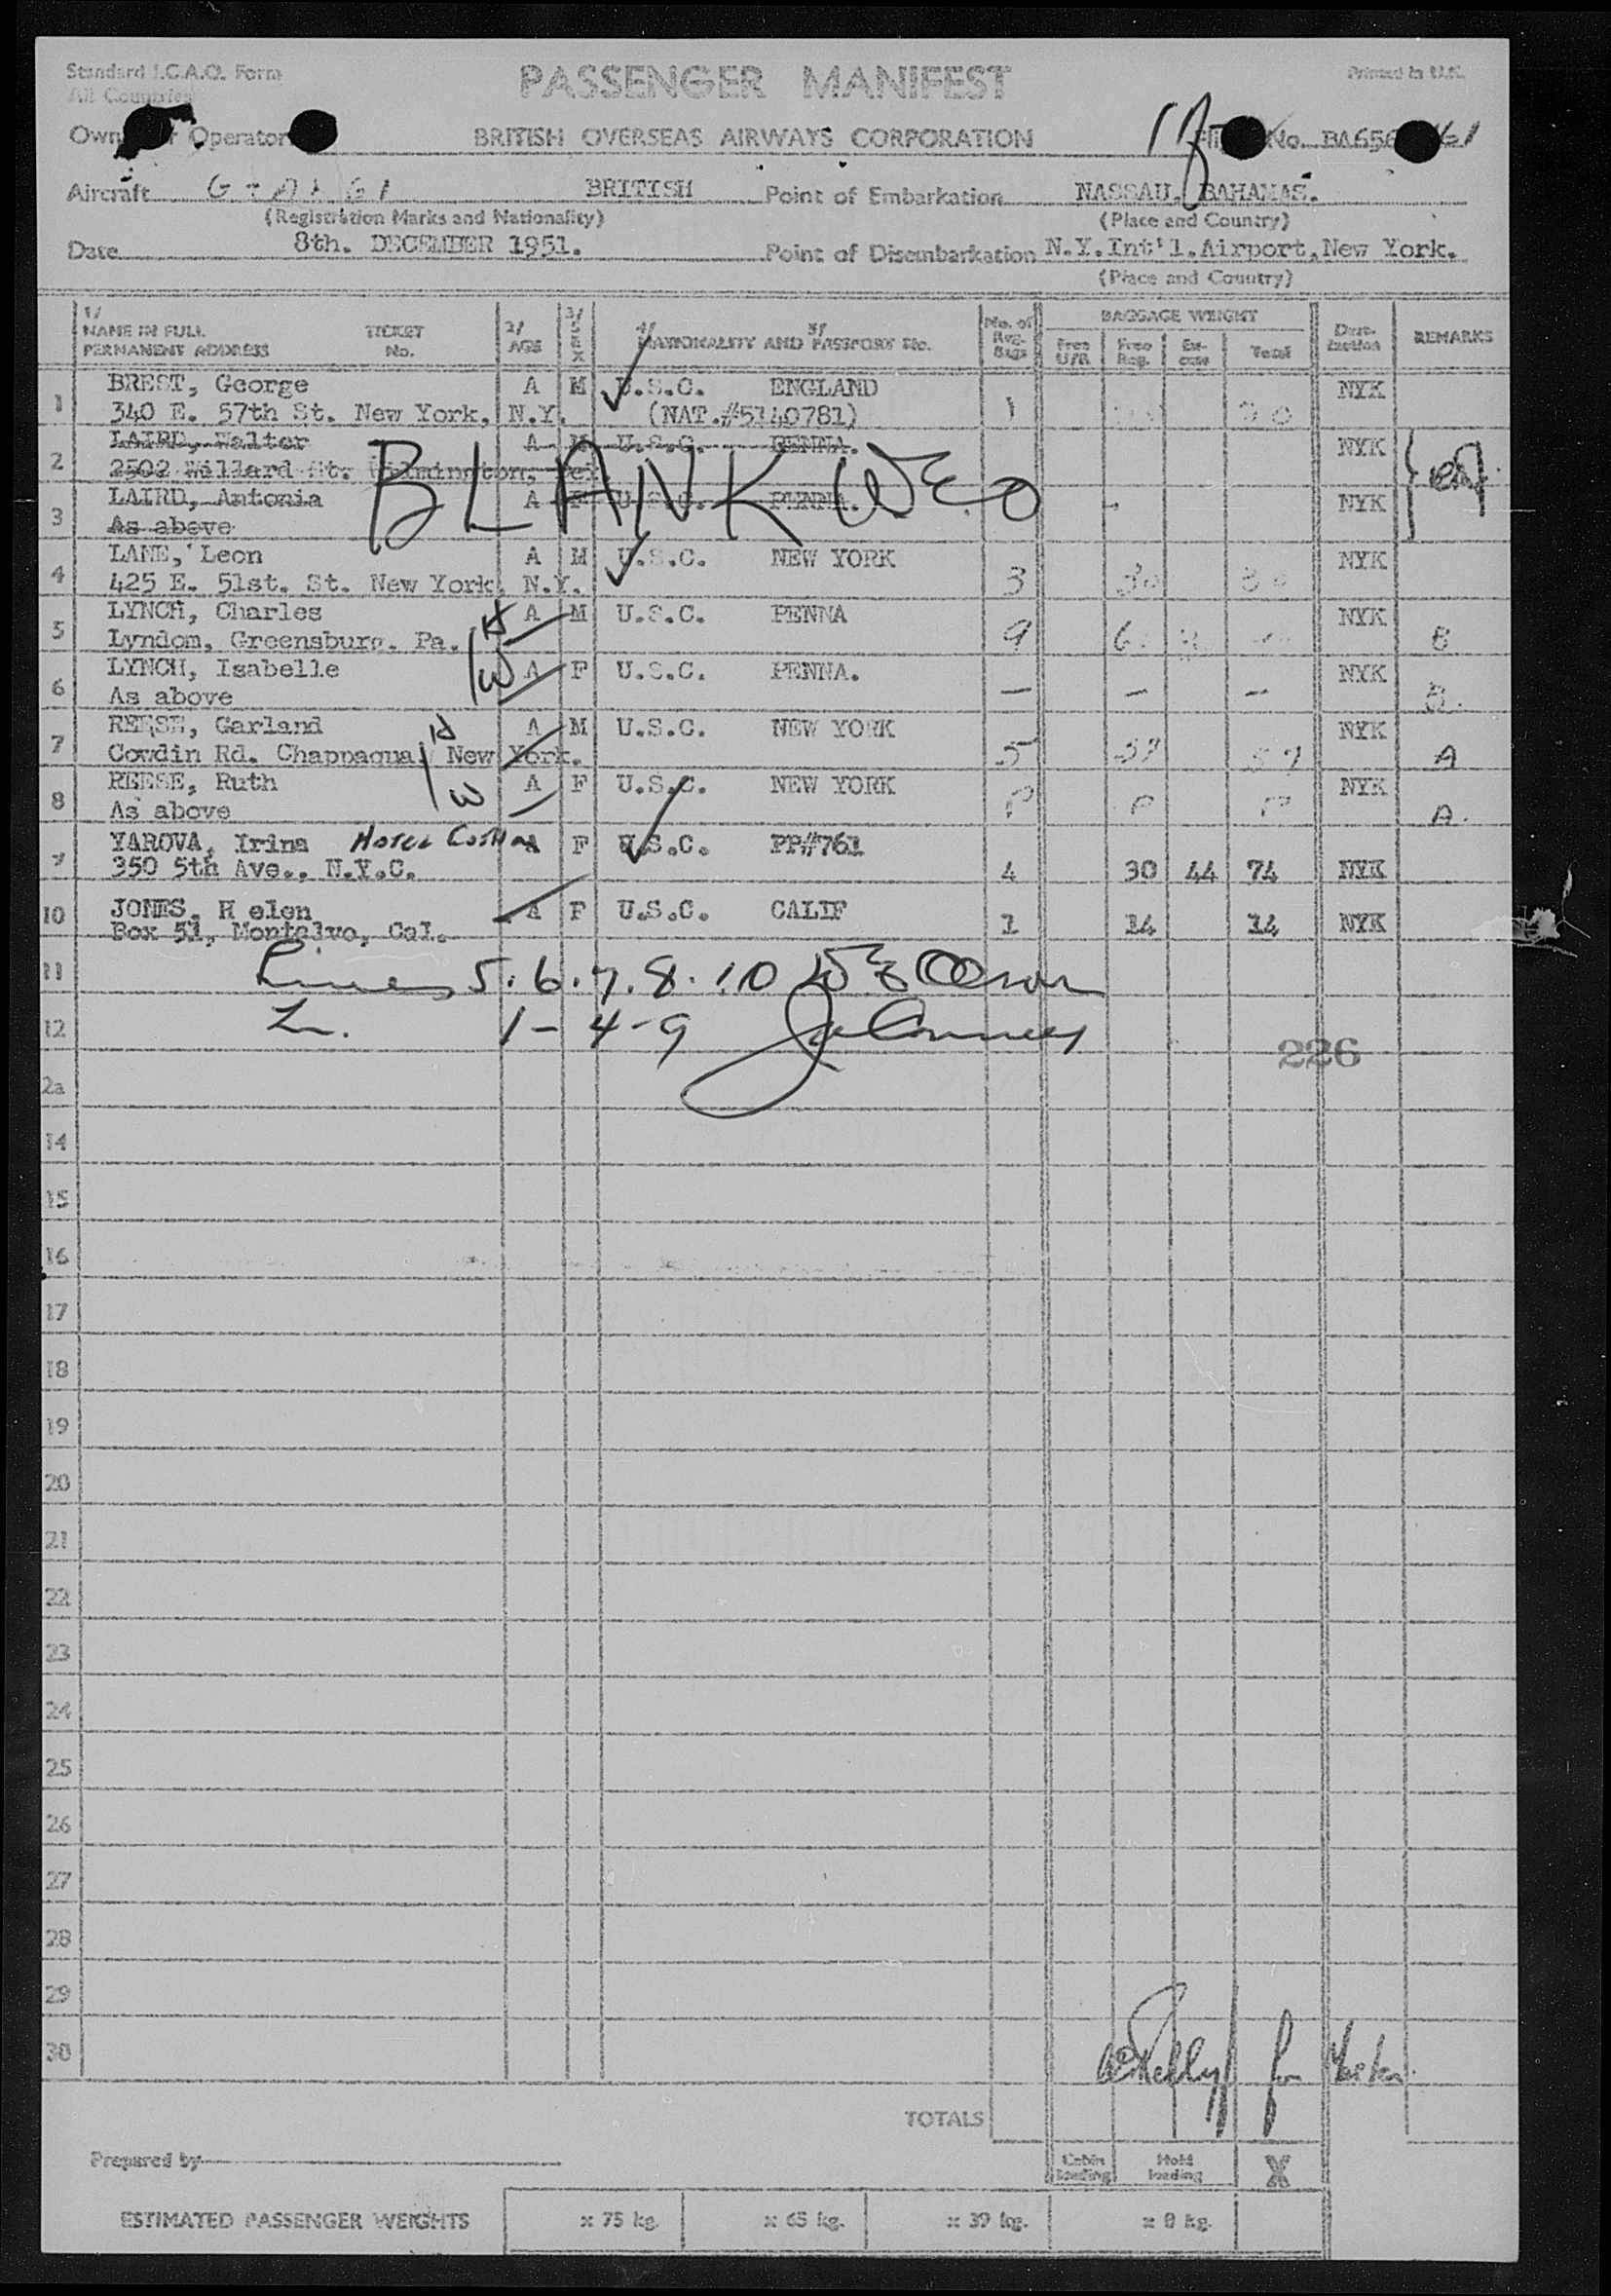 Standard I.C.A.O. Form
All Countries
PASSENGER MANIFEST
Printed in U.K.
Operator
BRITISH OVERSEAS AIRWAYS CORPORATION
No. BA656
Aircraft
BRITISH
Point of Embarkation
NASSAU, BAHAMAS.
(Registration Marks and Nationality)
(Place and Country)
Date
8th. DECEMBER 1951.
Point of Disembarkation N.Y.Int'l.Airport,New York.
(Place and Country)
1/ NAME IN FULL PERMANENT ADDRESS
TICKET No.
2/ AGE
3/ SEX
4/ 5/
NATIONALITY AND PASSPORT No.
No. of Reg. Bags
BAGGAGE WEIGHT
Free U/R
Free Reg.
Ex- cess
Total
Dest- ination
REMARKS
1 BREST, George A M U.S.C. ENGLAND NYK
340 E. 57th St. New York, N.Y. (NAT.#5140781) 1
2 LAIRD, Walter A M U.S.C. PENNA. NYK
2502 Willard St. Wilmington, Del
BLANK WEO
3 LAIRD, Antonia A F U.S.C. PENNA. NYK
As above
4 LANE, Leon A M U.S.C. NEW YORK NYK
425 E. 51st. St. New York, N.Y. 3 30 30
5 LYNCH, Charles H A M U.S.C. PENNA NYK
Lyndom, Greensburg. Pa. 9 B
6 LYNCH, Isabelle W A F U.S.C. PENNA. NYK
As above — — — B.
7 REESE, Garland H A M U.S.C. NEW YORK NYK
Cowdin Rd. Chappaqua, New York. 5 A
8 REESE, Ruth W A F U.S.C. NEW YORK NYK
As above P P P A.
9 YAROVA, Irina HOTEL A F U.S.C. PP#761
350 5th Ave., N.Y.C. 4 30 44 74 NYK
10 JONES, H elen A F U.S.C. CALIF
Box 51, Montalvo, Cal. 1 14 14 NYK
11 Lines 5.6.7.8.10
12 L. 1-4-9
226
2a
14
15
16
17
18
19
20
21
22
23
24
25
26
27
28
29
30
for Master
TOTALS
Prepared by
Cabin loading
Hold loading
X
ESTIMATED PASSENGER WEIGHTS x 75 kg. x 65 kg. x 39 kg. x 8 kg.